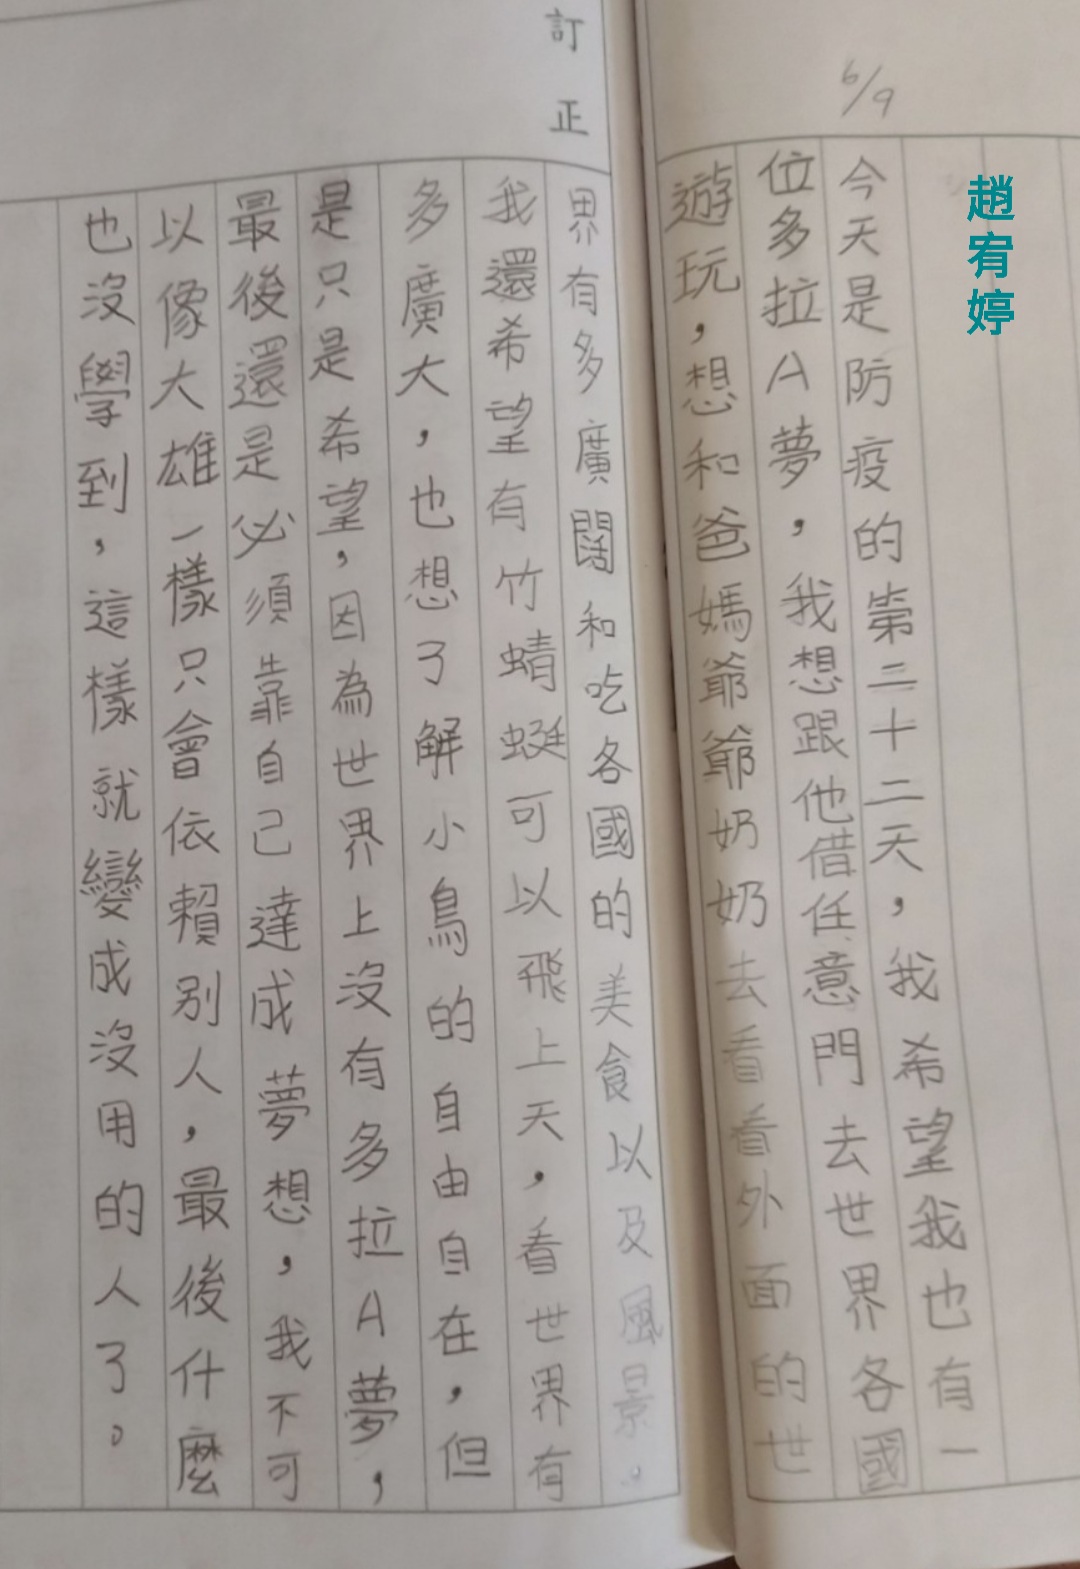 6/9
趙宥婷
今天是防疫的第二十二天，我希望我也有一
位多拉A夢，我想跟他借任意門去世界各國
遊玩，想和爸媽爺爺奶奶去看看外面的世
訂正
界有多廣闊和吃各國的美食以及風景。
我還希望有竹蜻蜓可以飛上天，看世界有
多廣大，也想了解小鳥的自由自在，但
是只是希望，因為世界上沒有多拉A夢，
最後還是必須靠自己達成夢想，我不可
以像大雄一樣只會依賴別人，最後什麼
也沒學到，這樣就變成沒用的人了。